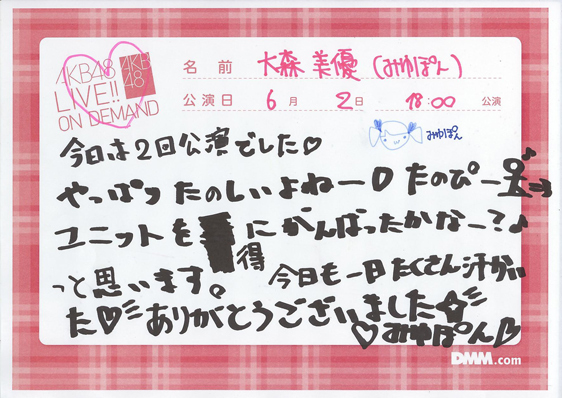 AKB48
LIVE!!
ON DEMAND
AKB
48
名前 大森美優(みゆぽん)
公演日 6月 2日 18:00 公演
みゆぽん
今日は2回公演でした♡
やっぱりたのしいよねー♡たのぴー♪
ユニットを 得にがんばったかなー?♪
っと思います。 今日も一日たくさん汗かい
た♡ありがとうございました☆
♡みゆぽん♡
DMM.com